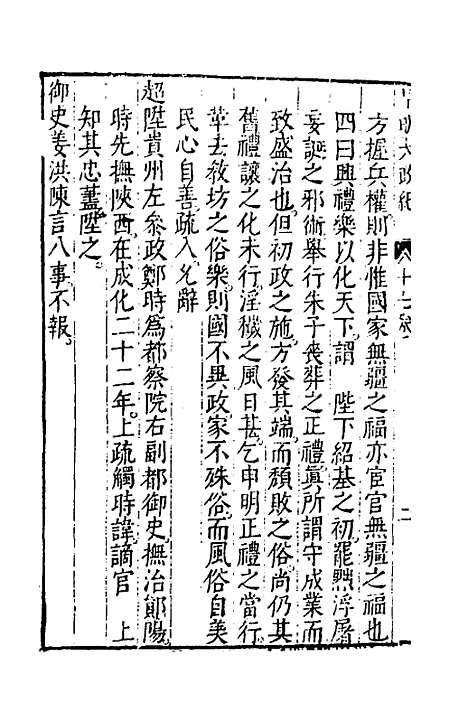 皇明大政紀 卷十七 二
方握兵權則非惟國家無疆之福亦宦官無疆之福也
四曰興禮樂以化天下謂 陛下紹基之初罷黜浮屠
妄誕之邪術舉行朱子喪葬之正禮真所謂守成業而
致盛治也但初政之施方發其端而頹敗之俗尚仍其
舊禮讓之化未行淫穢之風日甚乞申明正禮之當行
革去教坊之俗樂則國不異政家不殊俗而風俗自美
民心自善疏入允辭
超陞貴州左參政鄭時為都察院右副都御史撫治鄖陽
時先撫陝西在成化二十二年上疏觸時諱謫官 上
知其忠藎陞之
御史姜洪陳言八事不報